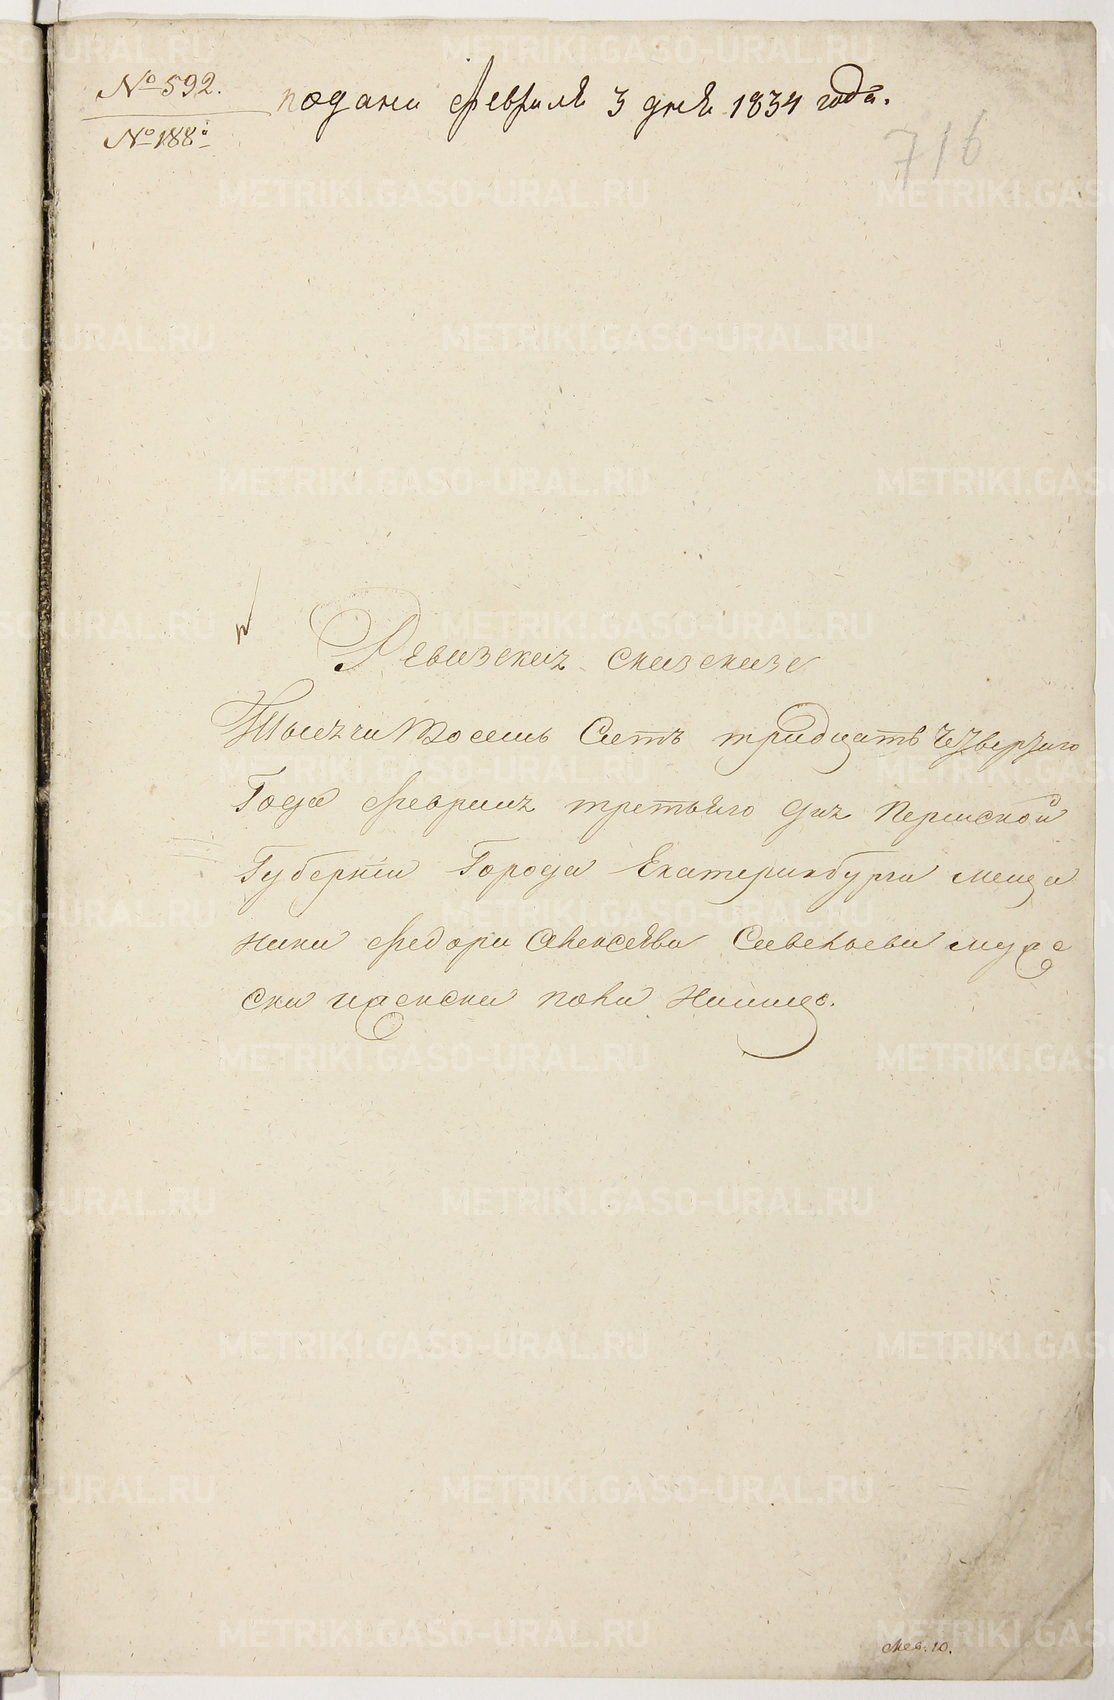 № 592.
подана февраля 3 дня 1834 года.
№ 188й
716
Ревизская сказская
Тысяча Восемь Сетъ тридцать Четвертаго
Года февраля третьяго дня Пермской
Губерніи Города Екатеринбурга меща
нина Федора Алексѣева Савельева муже
ска и женска пола
Мев. 10.
METRIKI.GASO-URAL.RU